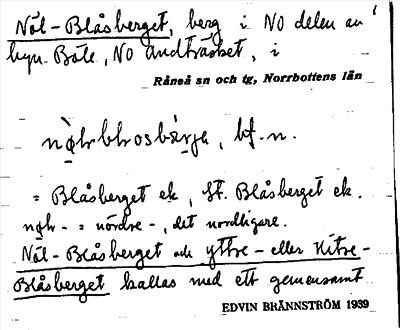 Nöl-Blåsberget, berg i NO delen av
byn Böle, NO Andträsket, i
Råneå sn och tg, Norrbottens län
bf. n.
= Blåsberget ek, St. Blåsberget ek.
= nördre-, det nordligare.
Nöl-Blåsberget och yttre- eller Hitre-
Blåsberget kallas med ett gemensamt
EDVIN BRÄNNSTRÖM 1939